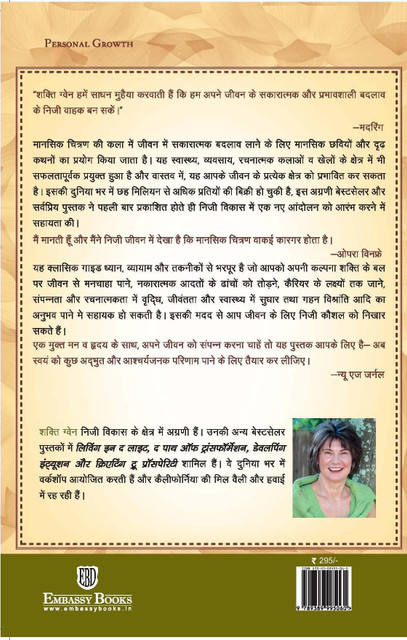 PERSONAL GROWTH
"शक्ति ग्वेन हमें साधन मुहैया करवाती हैं कि हम अपने जीवन के सकारात्मक और प्रभावशाली बदलाव
के निजी वाहक बन सकें।"
—मदरिंग
मानसिक चित्रण की कला में जीवन में सकारात्मक बदलाव लाने के लिए मानसिक छवियों और दृढ़
कथनों का प्रयोग किया जाता है। यह स्वास्थ्य, व्यवसाय, रचनात्मक कलाओं व खेलों के क्षेत्र में भी
सफलतापूर्वक प्रयुक्त हुआ है और वास्तव में, यह आपके जीवन के प्रत्येक क्षेत्र को प्रभावित कर सकता
है। इसकी दुनिया भर में छह मिलियन से अधिक प्रतियों की बिक्री हो चुकी है, इस अग्रणी बेस्टसेलर और
सर्वप्रिय पुस्तक ने पहली बार प्रकाशित होते ही निजी विकास में एक नए आंदोलन को आरंभ करने में
सहायता की।
मैं मानती हूँ और मैंने निजी जीवन में देखा है कि मानसिक चित्रण वाकई कारगर होता है।
—ओपरा विनफ्रे
यह क्लासिक गाइड ध्यान, व्यायाम और तकनीकों से भरपूर है जो आपको अपनी कल्पना शक्ति के बल
पर जीवन से मनचाहा पाने, नकारात्मक आदतों के ढांचों को तोड़ने, कैरियर के लक्ष्यों तक जाने,
संपन्नता और रचनात्मकता में वृद्धि, जीवंतता और स्वास्थ्य में सुधार तथा गहन विश्रांति आदि का
अनुभव पाने मे सहायक हो सकती है। इसकी मदद से आप जीवन के लिए निजी कौशल को निखार
सकते हैं।
एक मुक्त मन व हृदय के साथ, अपने जीवन को संपन्न करना चाहें तो यह पुस्तक आपके लिए है— अब
स्वयं को कुछ अद्भुत और आश्चर्यजनक परिणाम पाने के लिए तैयार कर लीजिए।
—न्यू एज जर्नल
शक्ति ग्वेन निजी विकास के क्षेत्र में अग्रणी हैं। उनकी अन्य बेस्टसेलर
पुस्तकों में लिविंग इन द लाइट, द पाथ ऑफ ट्रांसफॉर्मेशन, डेवलपिंग
इंट्यूशन और क्रिएटिंग ट्रू प्रॉसपेरिटी शामिल हैं। वे दुनिया भर में
वर्कशॉप आयोजित करती हैं और कैलीफोर्निया की मिल वैली और हवाई
में रह रही हैं।
₹ 295/-
EBD
EMBASSY BOOKS
www.embassybooks.in